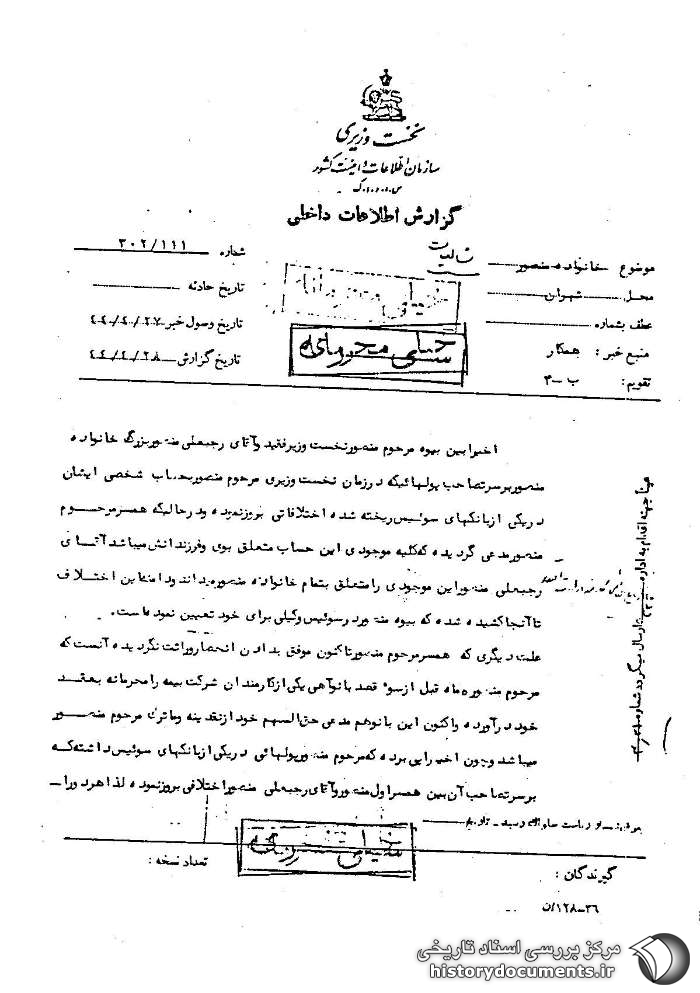 نخست وزیری
سازمان اطلاعات و امنیت کشور
س.ا.و.ا.ک
گزارش اطلاعات داخلی
موضوع خانواده منصور
شماره ۳۰۲/۱۱۱
محل تهران
تاریخ حادثه
عطف بشماره
تاریخ وصول خبر ۴۴/۴/۲۷
منبع خبر : همکار
تاریخ گزارش ۴۴/۴/۲۸
تقویم : ب-۳
خیلی محرمانه
اخیرا بین بیوه مرحوم منصور نخست وزیر فقید و آقای رجبعلی منصور بزرگ خانواده
منصور بر سر تصاحب پولهائیکه در زمان نخست وزیری مرحوم منصور بحساب شخصی ایشان
در یکی از بانکهای سوئیس ریخته شده اختلافاتی بروز نموده و در حالیکه همسر مرحوم
منصور مدعی گردیده که کلیه موجودی این حساب متعلق بوی و فرزندانش میباشد آقای
رجبعلی منصور این موجودی را متعلق بتمام خانواده منصور میداند و دامنه این اختلاف
تا آنجا کشیده شده که بیوه منصور در سوئیس وکیلی برای خود تعیین نموده است.
علت دیگری که همسر مرحوم منصور تا کنون موفق بدادن انحصار وراثت نگردیده آنست که
مرحوم منصور ۵ ماه قبل از سوء قصد بانوآهی یکی از کارمندان شرکت بیمه را محرمانه بعقد
خود درآورده و اکنون این بانو هم مدعی حق السهم خود از نقدینه و ماترک مرحوم منصور
میباشد و چون اخیرا پی برده که مرحوم منصور پولهائی در یکی از بانکهای سوئیس داشته که
بر سر تصاحب آن بین همسر اول منصور و آقای رجبعلی منصور اختلافی بروز نموده لذا هر دو را
عینا جهت اقدام به اداره
ارسال میگردد شماره
گیرندگان :
تعداد نسخه :
۳۶-۱۲۸/ن
مرکز بررسی اسناد تاریخی
historydocuments.ir